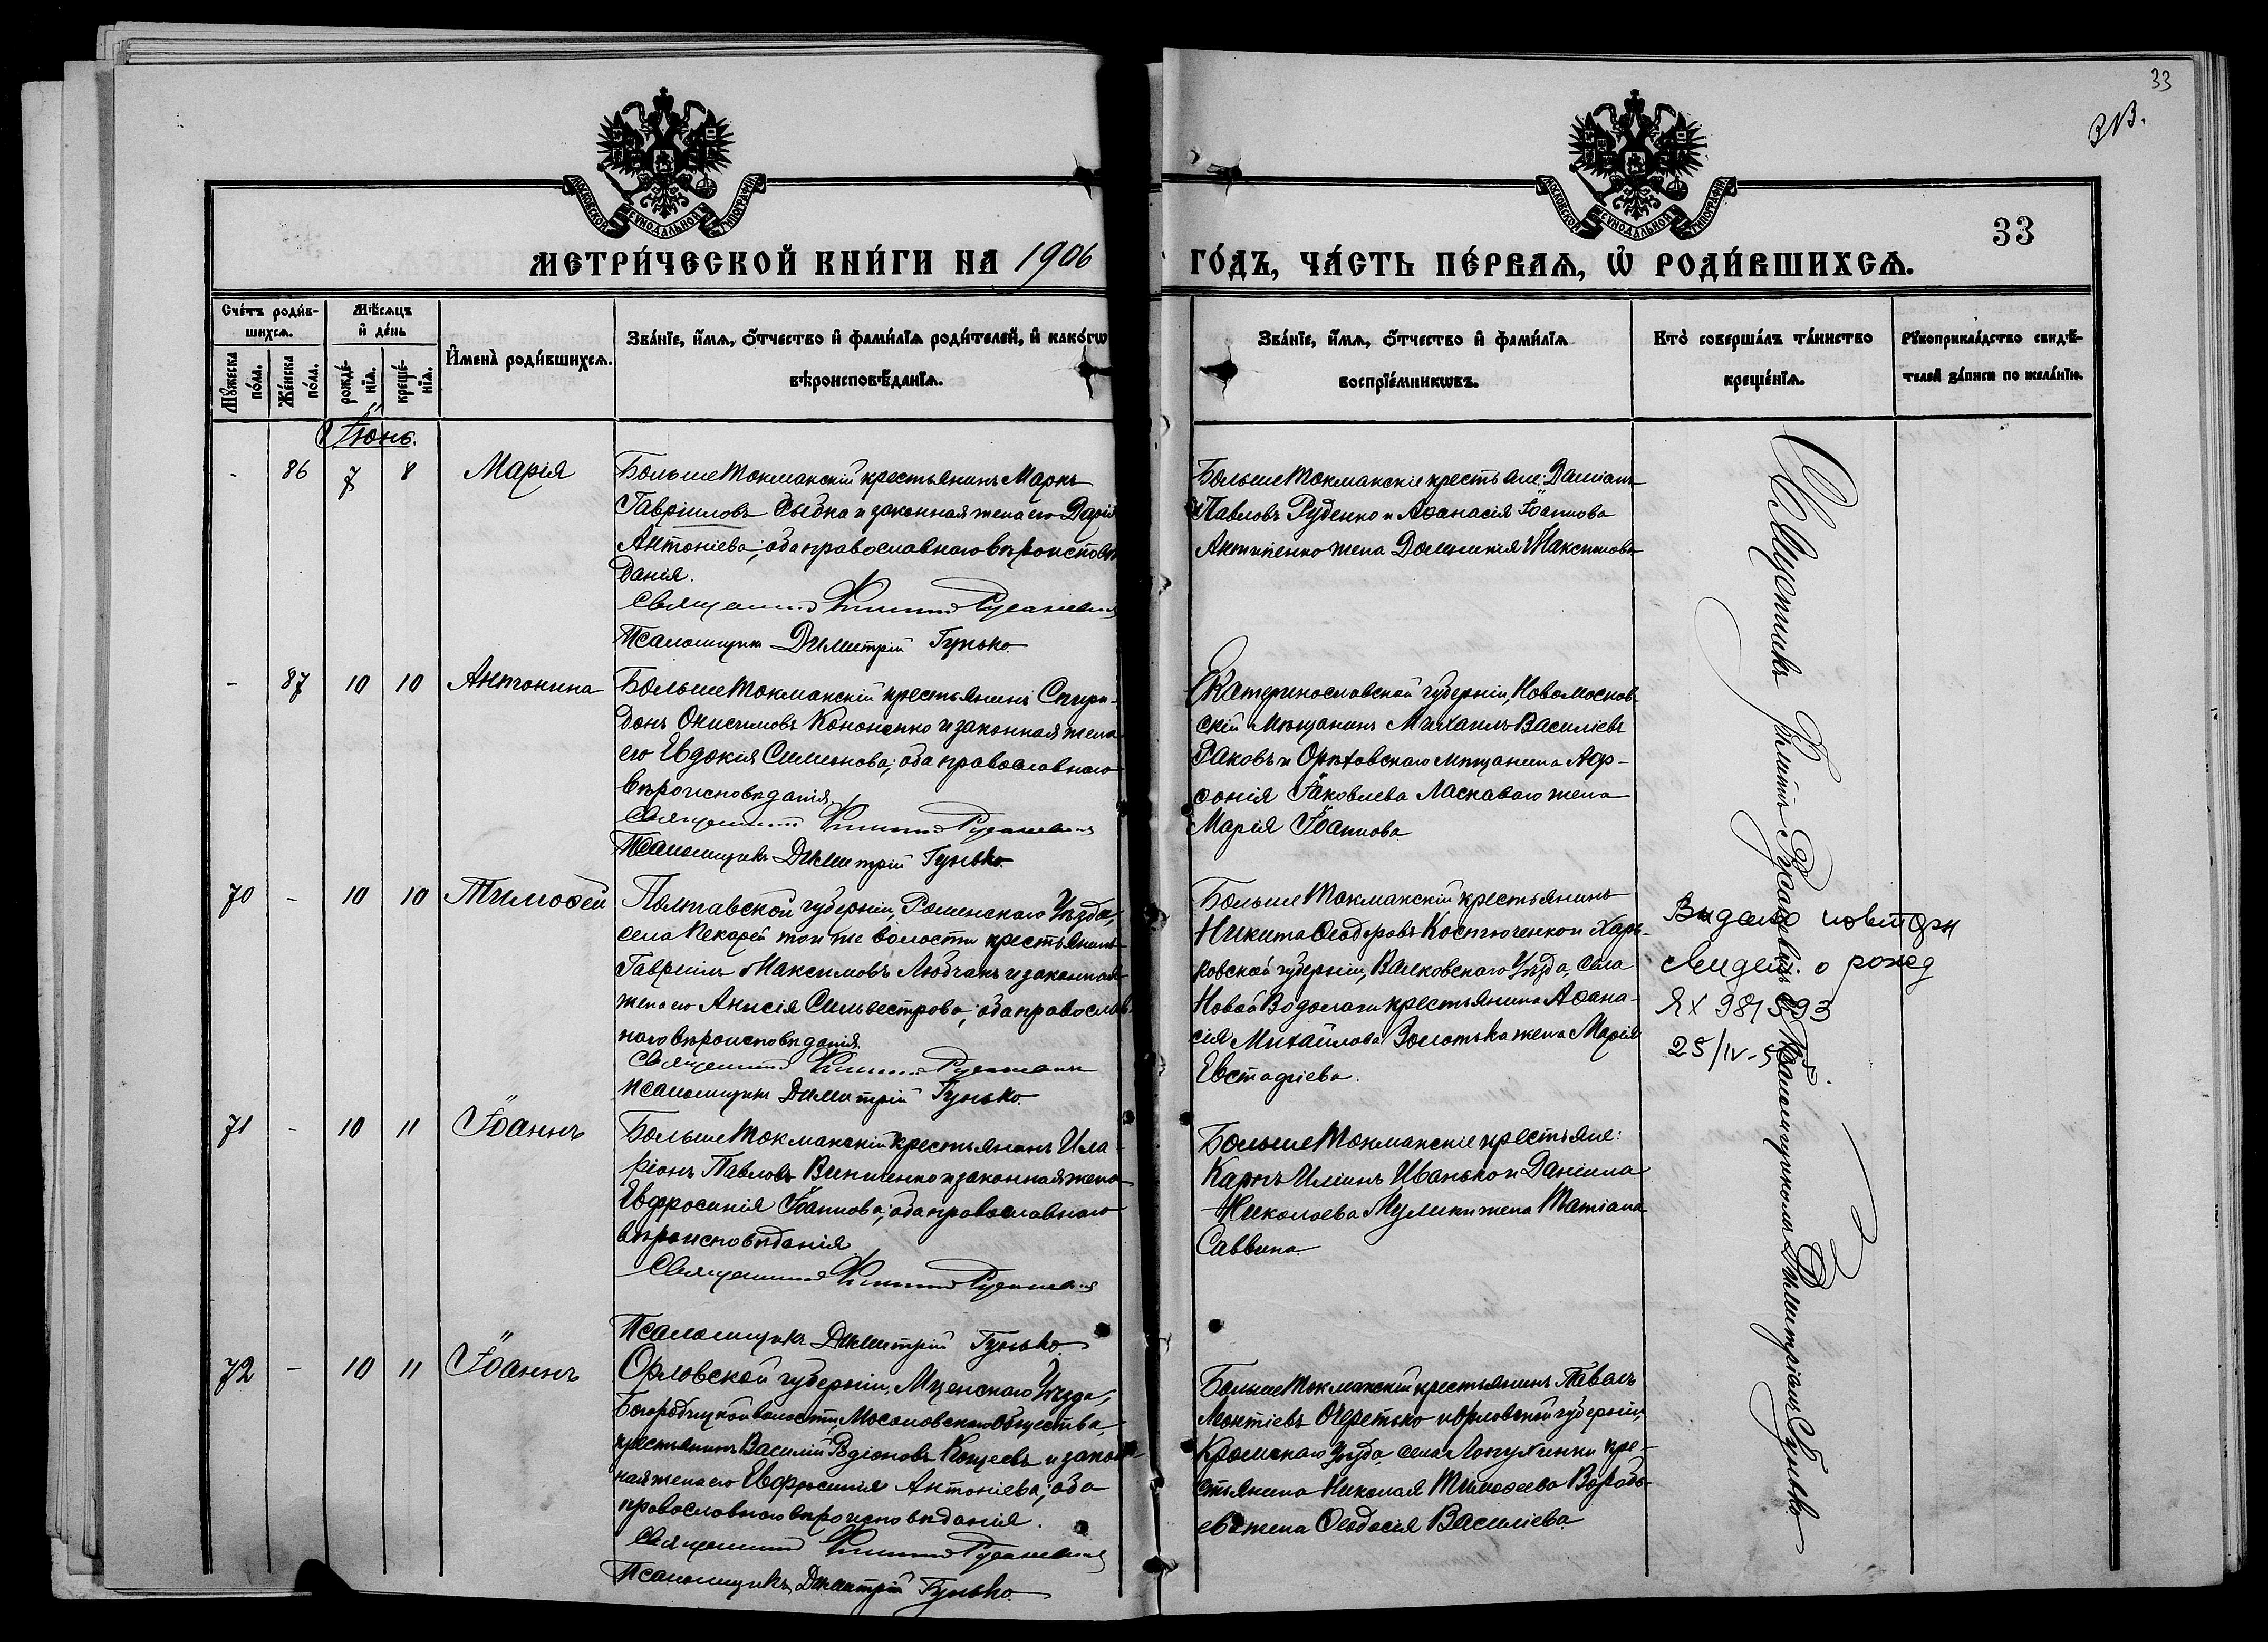 33
МЕТРИ́ЧЕСКОЙ КНИ́ГИ НА 1906
ГО́ДЪ, ЧА́СТЬ ПЕ́РВАѦ, Ѡ҆ РОДИ́ВШИХСѦ.
33
Сче́тъ роди́в-
шихсѧ.
Мꙋ́жеска по́ла.
Же́нска по́ла.
Мѣ́сѧцъ
и҆ де́нь
рожде́-
нїѧ.
креще́-
нїѧ.
И҆мена̀ роди́вшихсѧ.
Зва́нїе, и҆́мѧ, ѻ҆́тчество и҆ фами́лїѧ роди́телей, и҆ како́гѡ
вѣроисповѣ́данїѧ.
Зва́нїе, и҆́мѧ, ѻ҆́тчество и҆ фами́лїѧ
воспрїе́мникѡвъ.
Кто̀ соверша́лъ та́инство
креще́нїѧ.
Рꙋкоприкла́дство свидѣ́-
телей за́писи по жела́нїю.
Іюнь.
- 86 7 8 Марія
БольшеТокмакскій крестьянинъ Маркъ
Гавріиловъ и законная жена его Дарія
Антоніева; оба православнаго вѣроисповѣ
данія.
Священникъ
Псаломщикъ Димитрій Гунько
БольшеТокмакскіе крестьяне: Даміанъ
Павловъ Руденко и Аѳанасія Іоаннова
Антипенко жена Домникія Максимова
- 87 10 10 Антонина
БольшеТокмакскій крестьянинъ Спири-
донъ Онисимовъ Кононенко и законная жена
его Евдокія Симеонова; оба православнаго
вѣроисповѣданія.
Священникъ
Псаломщикъ Димитрій Гунько.
Екатеринославской губерніи, Новомосков-
скій мѣщанинъ Михаилъ Василіевъ
Раковъ и Орѣховскаго мѣщанина Аф-
фонія Іаковлева Ласкаваго жена
Марія Іоаннова
70 - 10 10 Тимоѳей
Полтавской губерніи, Роменскаго Уѣзда,
села Пекарей той же волости крестьянинъ
Гавріилъ Максимовъ Любчакъ и законная
жена его Анисія Сильвестрова; оба православ
наго вѣроисповѣданія.
Священникъ
Псаломщикъ Димитрій Гунько.
БольшеТокмакскій крестьянинъ
Никита Ѳеодоровъ Костюченко и Харь-
ковской губерніи, Валковскаго Уѣзда, села
Новой Водолаги крестьянина Аѳана-
сія Михайлова Золотька жена Марія
Евстафіева.
71 - 10 11 Іоаннъ
БольшеТокмакскій крестьянинъ Ила-
ріонъ Павловъ Винниченко и законная жена
Евфросинія Іоаннова; оба православнаго
вѣроисповѣданія.
Священникъ
Псаломщикъ Димитрій Гунько.
БольшеТокмакскіе крестьяне:
Карпъ Иліинъ Иванько и Даніила
Николаева Мулики жена Татіана
Саввина.
72 - 10 11 Іоаннъ
Орловской губерніи, Мценскаго Уѣзда,
Богородицкой волости, Мосоловскаго Общества,
крестьянинъ Василій Родіоновъ Кощеевъ и закон-
ная жена его Евфросинія Антоніева; оба
православнаго вѣроисповѣданія.
Священникъ
Псаломщикъ Димитрій Гунько.
БольшеТокмакскій крестьянинъ Павелъ
Леонтіевъ Очеретько и Орловской губерніи,
Кромскаго Уѣзда села Лопухинки кре-
стьянина Николая Тимоѳеева Воробь-
ева жена Ѳеодосія Василіева.
Священникъ съ Псаломщикомъ Димитріемъ Гунько.
Видано повторн
свидет. о рожд
ЯХ 981593
25/IV-